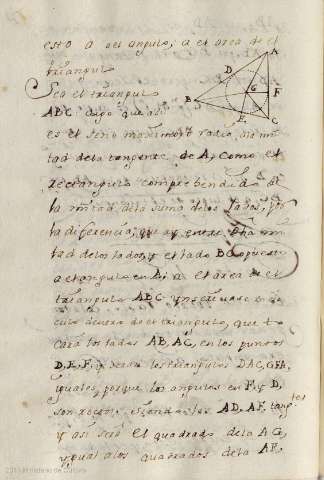 esto a del angulo, a el area de el
triangulo
Sea el triangulo
ABC digo, que asi
es el seno
tad de la tangente de A, como el
rectangulo comprehendido de
la mitad de la suma de los lados, y
la diferencia, que ay entre mi
tad de los lados, y el lado BC opuesto
a el angulo en A, a el area de el
triangulo ABC ynscrivase
culo dentro de el triangulo, que to
cara los lados AB, AC, en los puntos
D, E, F, los triangulos DAG, GFA,
yguales, porque los angulos en F, y D,
son rectos, AD, AF, tangtes
y asi será el quadrado de la AG,
ygual a los quadrados de la AF,
A
D
G
B
F
E
C